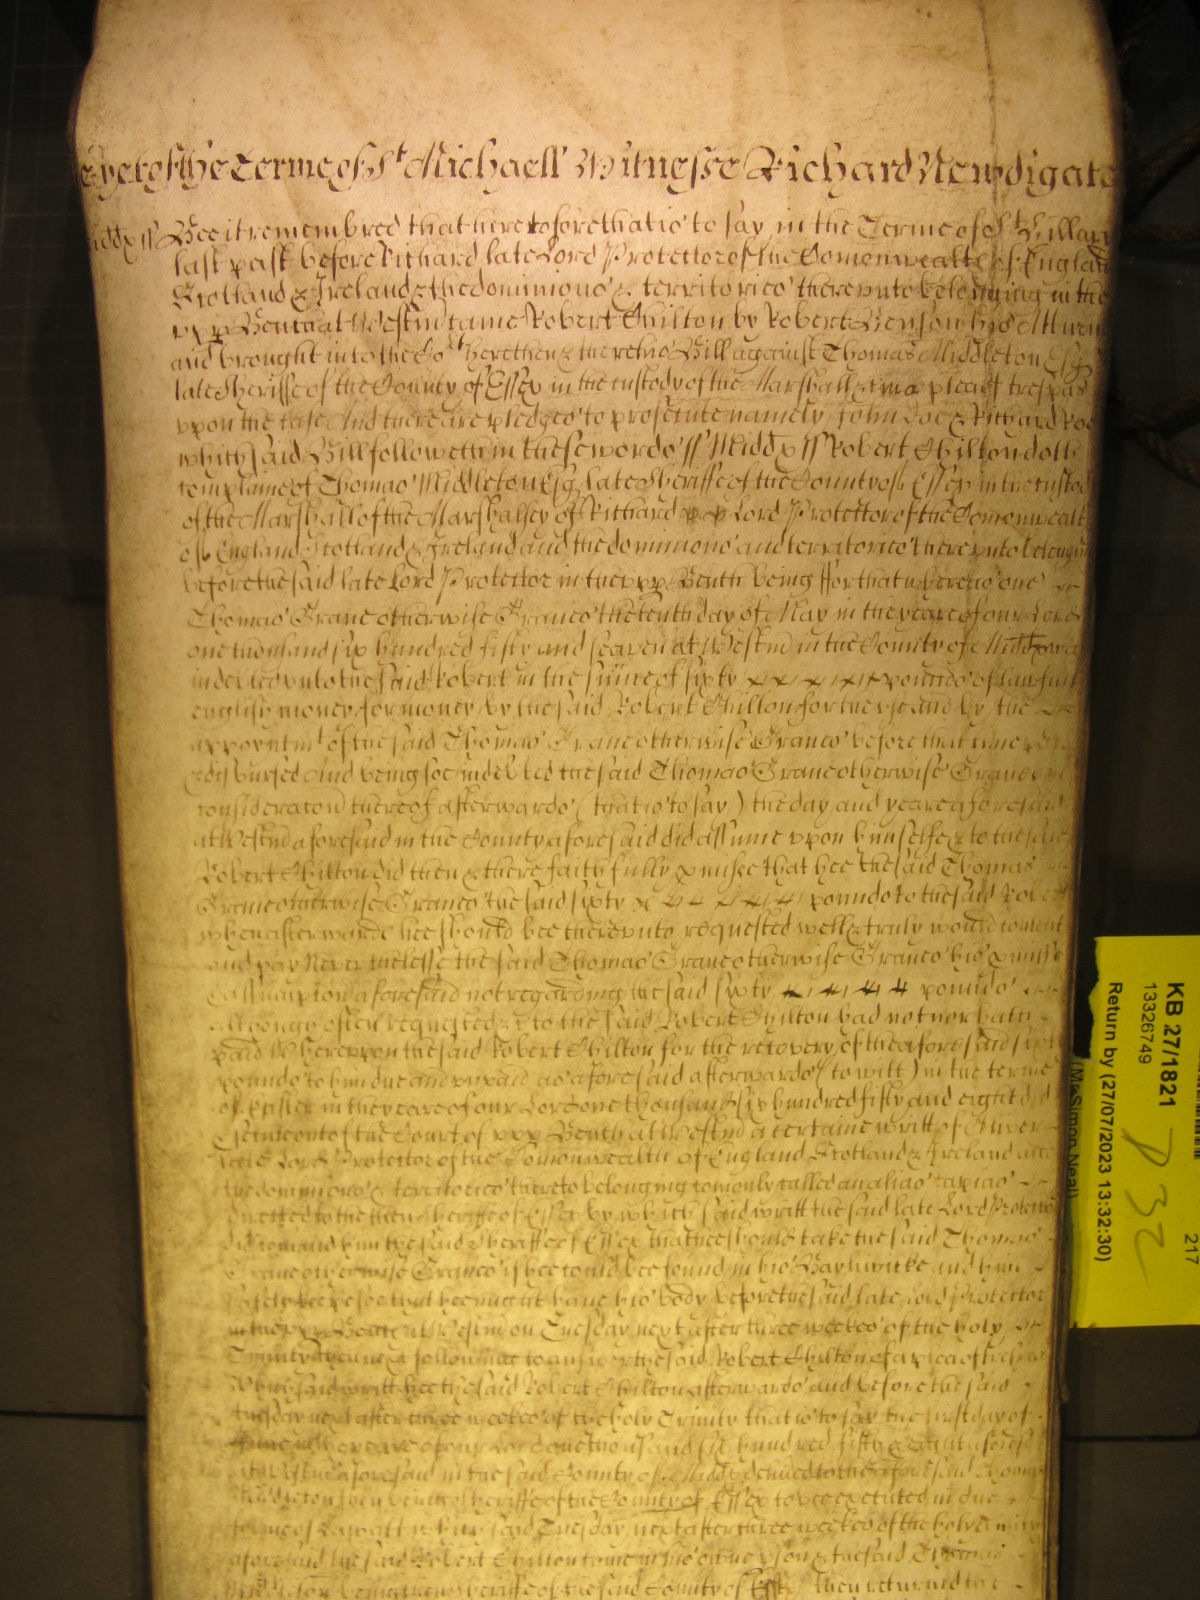 yet of the Terme of St Michaell Witnesse Richard Newdigate
Middx ss Bee it remembred that heretofore that is to say in the Terme of St Hillary
last past before Richard late Lord Protector of the Comonwealth of England
Scotland & Ireland & the dominions & territories therevnto belonging in the
vpp Bench at Westm came Robert Chilton by Robert Benson his Attorn
and brought into the Cort here then & there his Bill against Thomas Middleton Esq
late Sheriffe of the County of Essex in the custody of the Marshall &c in a plea of trespas
vpon the case And there are pledges to prosecute namely John Doe & Richard Roe
which said Bill followeth in these words ss Middx ss Robert Chilton doth
complaine of Thomas Middleton Esq late Sheriffe of the County of Essex in the custod
of the Marshall of the Marshalsey of Richard Lord Protector of the Comonwealt
of England Scotland & Ireland and the dominions and territories therevnto belonging
before the said late Lord Protector in the vpp Bench being ffor that whereas one
Thomas Grane otherwise Granes the tenth day of May in the yeare of our Lord
one thousand six hundred fifty and seaven at Westm in the County of Middx was
indebted vnto the said Robert in the sume of sixty pounds of lawfull
english money for money by the said Robert Chilton for the vse and by the
appoyntmt of the said Thomas Grane otherwise Granes before that time
disbursed And being soe indebted the said Thomas Grane otherwise Granes in
consideracon thereof afterwards (that is to say) the day and yeare aforesaid
at Westm aforesaid in the County aforesaid did assume vpon himselfe & to the said
Robert Chilton did then & there faithfully pmise that hee the said Thomas
Grane otherwise Granes the said sixty pounds to the said Robert
when afterwards hee should bee therevnto requested well & truly would content
and pay Neverthelesse the said Thomas Grane otherwise Granes his pmise
& assumption aforesaid not regarding the said sixty pounds
although often requested &c to the said Robert Chilton had not nor hath
paid Wherevpon the said Robert Chilton for the recovery of the aforesaid sixty
pounds to him due and vnpaid as aforesaid afterwards (to witt) in the terme
of Easter in the yeare of our Lord one thousand six hundred fifty and eight did
out of the Court of vpp Bench at Westm a certaine writt of Oliver
late Lord Protector of the Comonwealth of England Scotland & Ireland and
the dominions & territories thereto belonging comonly called an alias capias
directed to the then Sheriffe of Essex by which said writt the said late Lord Protector
did comand him the said Sheriffe of Essex that hee should take the said Thomas
Grane otherwise Granes if hee could bee found in his Baylywicke and him
safely keepe soe that hee might have his body before the said late Lord Protector
in the vpp Bench at Westm on Tuesday next after three weekes of the holy
Trinity then next following to answer the said Robert Chilton of a plea of trespas
Which said writt hee the said Robert Chilton afterwards and before the said
tuesday next after three weekes of the holy Trinity that is to say the first day of
June in the yeare of our Lord one thousand six hundred fifty & eight afores
at Westm aforesaid in the said County of Middx delivered to the aforesaid Thomas
Middleton then being Sheriffe of the County of Essex to bee executed in due
forme of Law att which said Tuesday next after three weekes of the holy Trinity
aforesaid the said Robert Chilton came in his owne pson & the said Thomas
Middleton being then Sheriffe of the said County of Essex then returned the
KB 27/1821
13326749
217
Return by (27/07/2023 13:32:30)
(Mr Simon Neal)
P 32